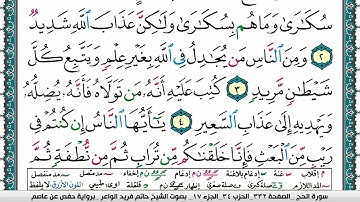 سُكَٰرَىٰ وَمَا هُم بِسُكَٰرَىٰ وَلَٰكِنَّ عَذَابَ ٱللَّهِ شَدِيدٞ
٢ وَمِنَ ٱلنَّاسِ مَن يُجَٰدِلُ فِي ٱللَّهِ بِغَيۡرِ عِلۡمٖ وَيَتَّبِعُ كُلَّ
شَيۡطَٰنٖ مَّرِيدٖ ٣ كُتِبَ عَلَيۡهِ أَنَّهُۥ مَن تَوَلَّاهُ فَأَنَّهُۥ يُضِلُّهُۥ
وَيَهۡدِيهِ إِلَىٰ عَذَابِ ٱلسَّعِيرِ ٤ يَٰٓأَيُّهَا ٱلنَّاسُ إِن كُنتُمۡ فِي
رَيۡبٖ مِّنَ ٱلۡبَعۡثِ فَإِنَّا خَلَقۡنَٰكُم مِّن تُرَابٖ ثُمَّ مِن نُّطۡفَةٖ ثُمَّ
سورة الحج - الصفحة ٣٣٢ الحزب ٣٤ الجزء ١٧ بصوت الشيخ حاتم فريد الواعر - برواية حفص عن عاصم